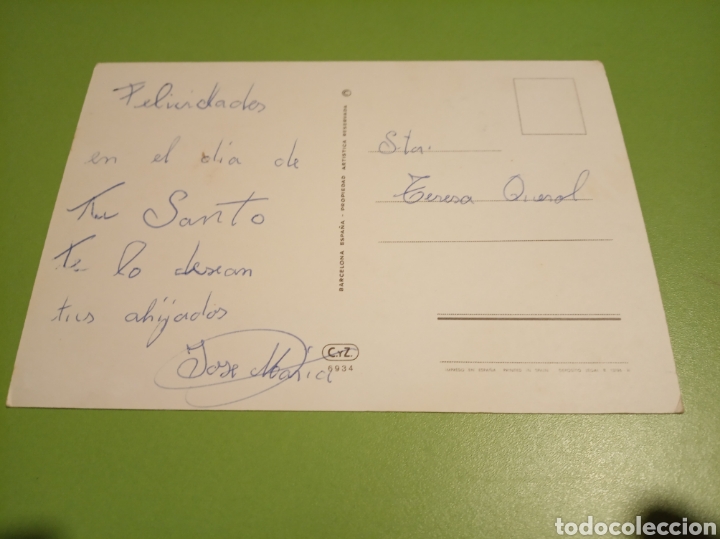 Felicidades
en el día de
Tu Santo
Te lo desean
tus ahijados
Jose Maria
BARCELONA ESPAÑA - PROPIEDAD ARTISTICA RESERVADA ©
C.Y.Z.
6934
Sta.
Teresa Querol
todocoleccion